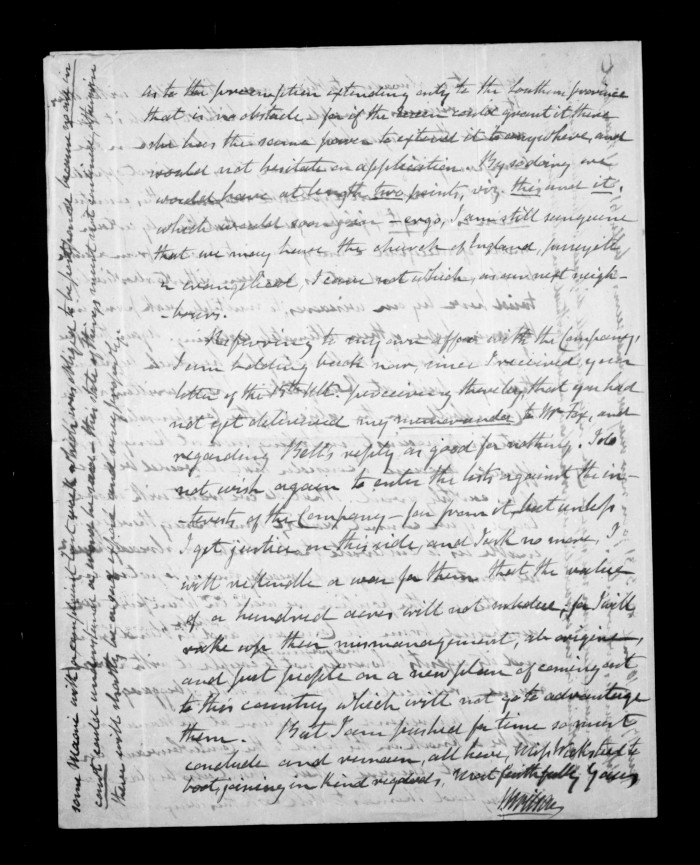 as to the preemption extending only to the Southern province
that is no obstacle for if the Queen could grant it there
she has the same power to extend it to anywhere, and
would not hesitate on application. By so doing we
would have at length two points, viz. this and it,
which would soon join - ergo, I am still sanguine
that we may have the church of England,
or evangelical, I care not which, as our next neigh-
-bours.
Referring to my own affair with the Company,
I am holding back now, since I received your
letter of the 15th Ult. perceiving thereby that you had
not yet delivered my memoranda to Mr. Fox, and
regarding Bell's reply as good for nothing. I do
not wish again to enter the lists against the in-
-terests of the Company - far from it, but unless
I get justice on this side, and I ask no more, I
will rekindle a war for them that the value
of a hundred acres will not for I will
rake up their mismanagement, ab origine,
and put people on a new plan of coming out
to this country which will not go to advantage
them. But I am pushed for time so must
conclude and remain, all here, Miss Wicksteed to
boot, joining in kind regards, Most faithfully Yours
J Wilson
some Maorie with a complaint in court which was obliged to be postponed because again in
court could understand as may be said - this state of things must not continue, otherwise
there will shortly be an end of and very properly.